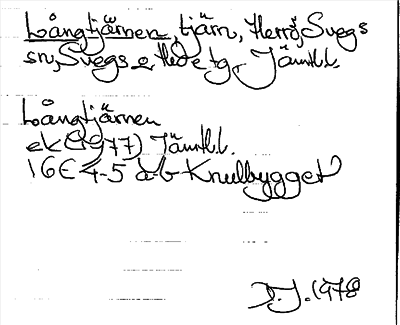 Långtjärnen, tjärn, Herrö, Svegs
sn, Svegs o Hede tg, Jämtl.l.
Långtjärnen
ek (1977) Jämtl.l.
16E 4-5 a-b Knulbygget
D.J. 1978